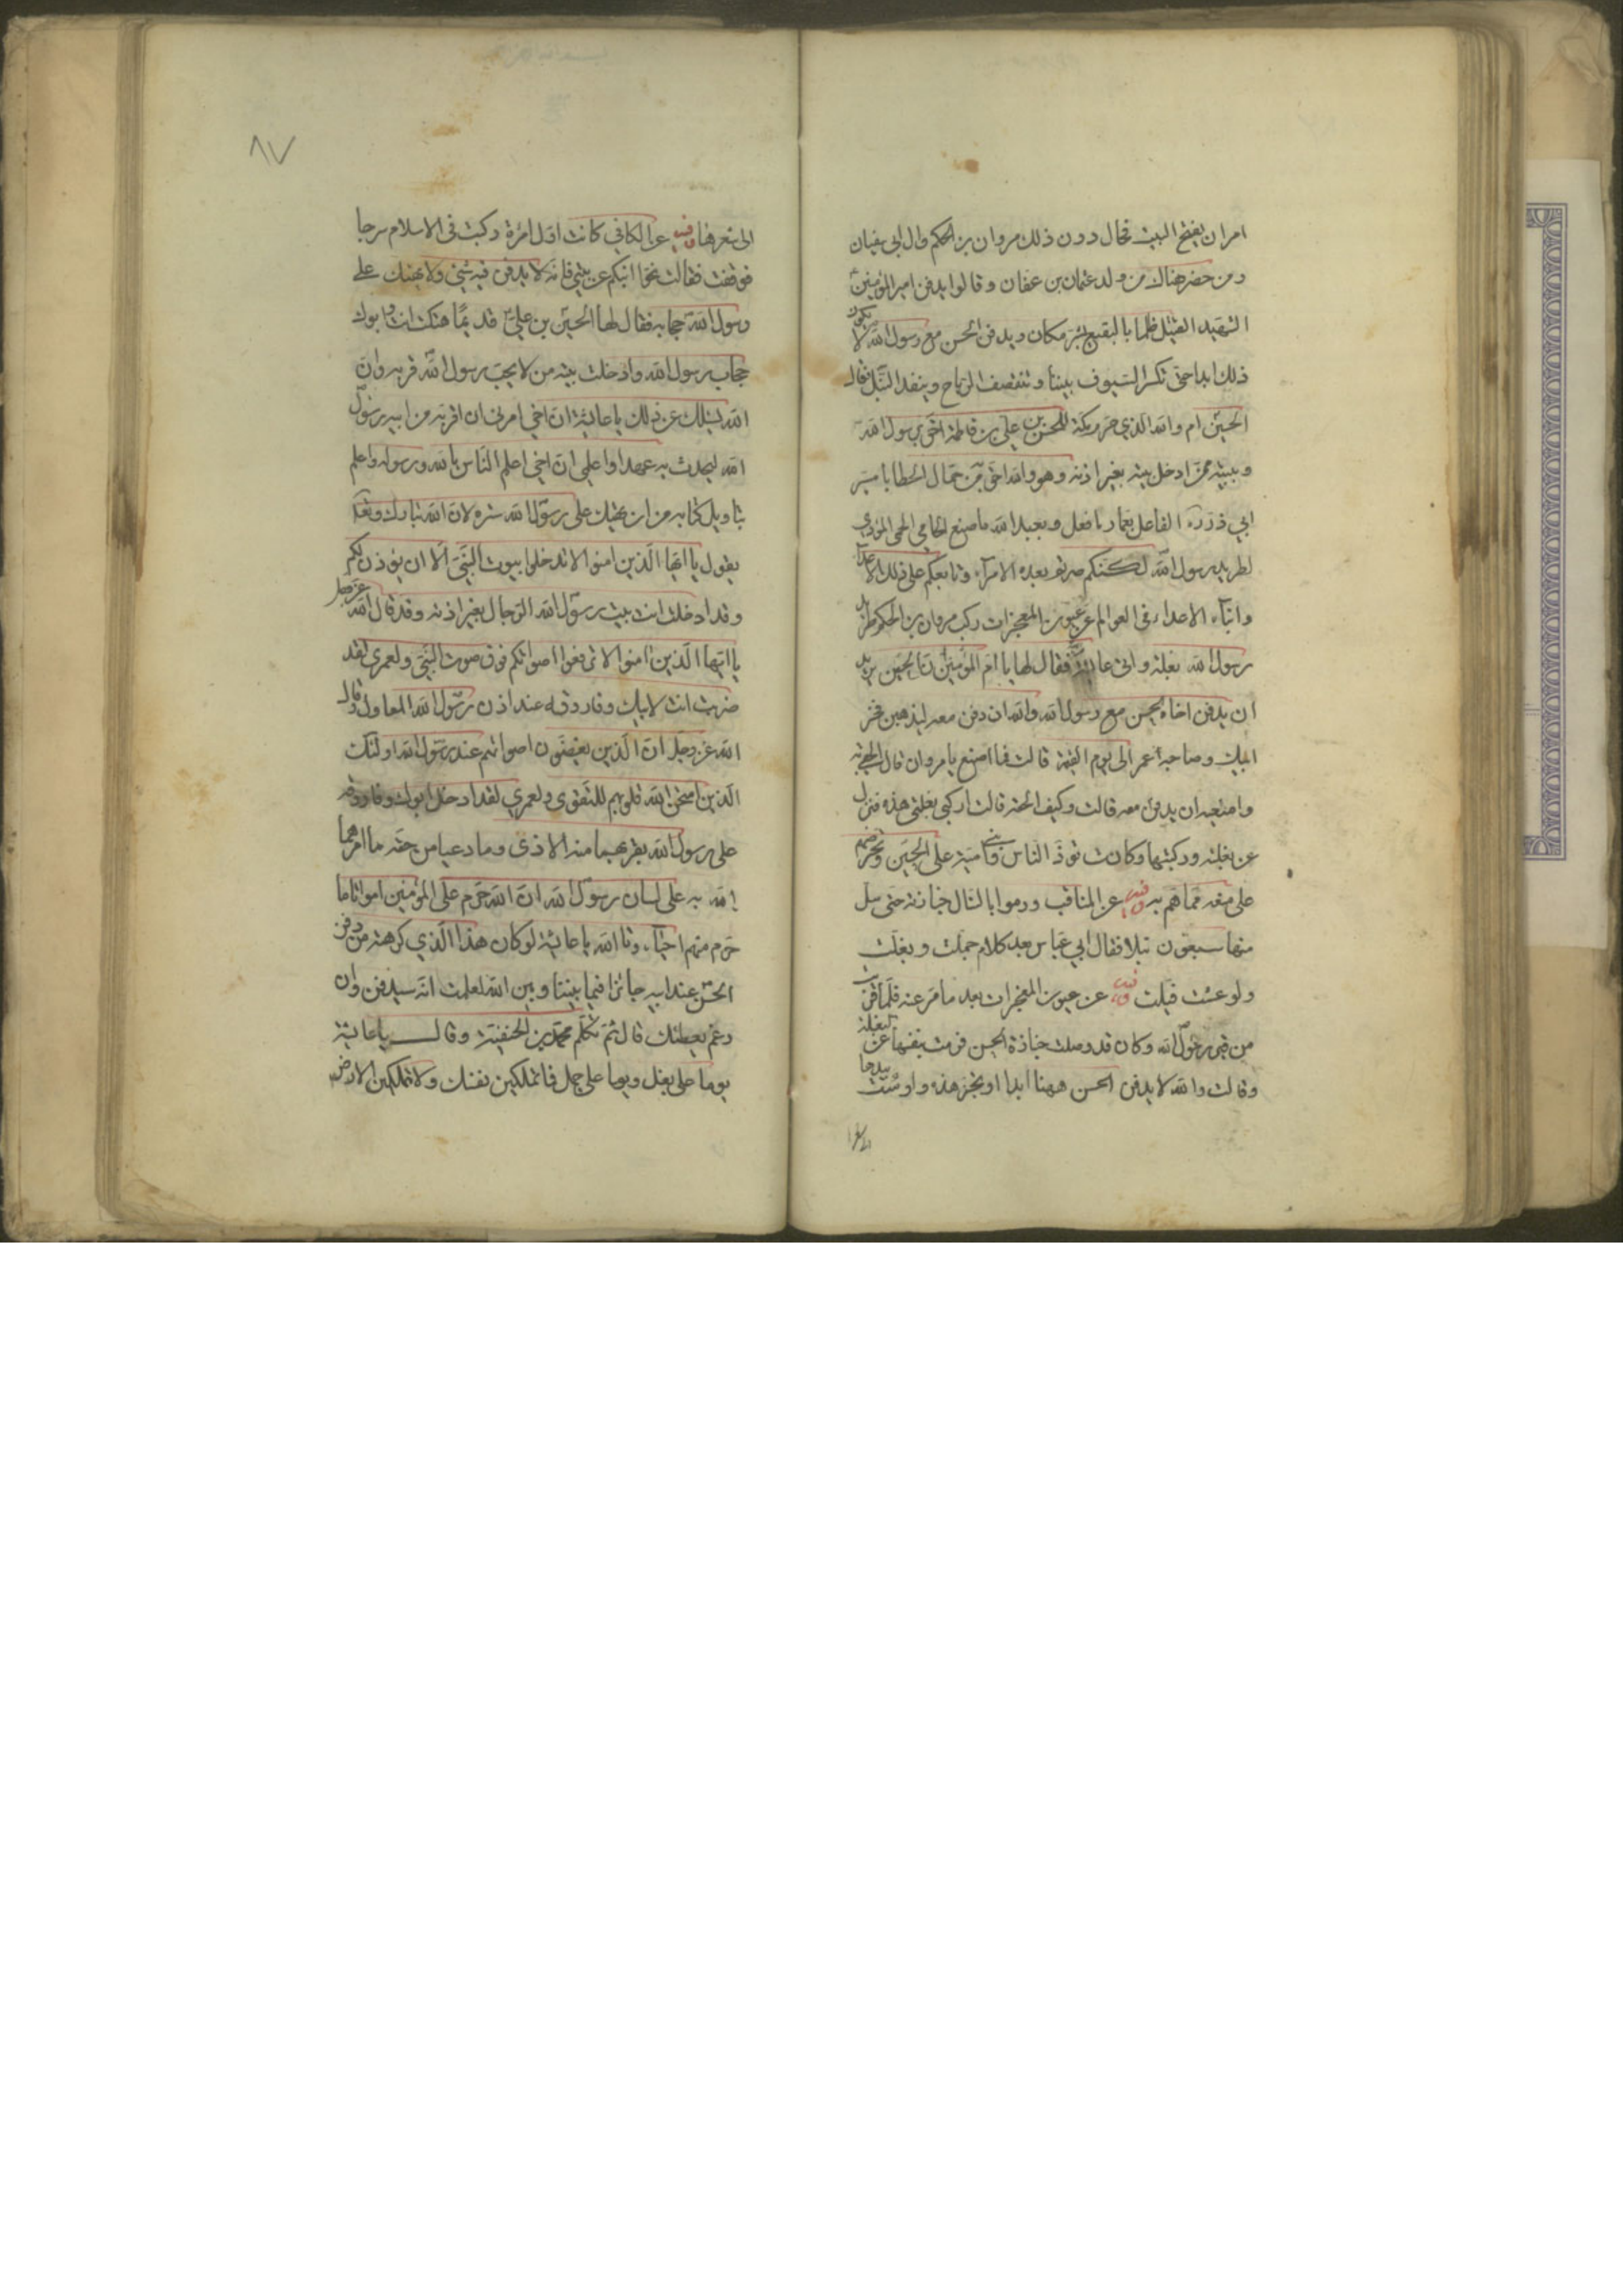 امران يفتح البيت فحال دون ذلك مروان بن الحكم وال ابي سفيان
ومن حضر هناك من ولد عثمان بن عفان وقالوا يدفن امير المؤمنين
الشهيد القتيل ظلما بالبقيع بشر مكان ويدفن الحسن مع رسول الله لا يكون
ذلك ابدا حتى تكسر السيوف بيننا وتنقصف الرماح وينفد النبل فقال
الحسين ام والله الذي حرم مكة للحسن بن علي بن فاطمة احق برسول الله
وببيته ممن ادخل بيته بغير اذنه وهو والله احق من حمال الخطايا مسير
ابي ذر ره الفاعل بعمار ما فعل وبعبد الله ما صنع الحامي الحمى المؤوي
لطريد رسول الله لكنكم صرتم بعده الامراء وتابعكم على ذلك الاعداء
وابناء الاعداء وفي العوالم عن عيون المعجزات ركب مروان بن الحكم طريد
رسول الله بغلة واتى عايشة فقال لها يا ام المؤمنين ان الحسين يريد
ان يدفن اخاه الحسن مع رسول الله والله ان دفن معه ليذهبن فخر
ابيك وصاحبه عمر الى يوم القيمة قالت فما اصنع يا مروان قال الحقي به
وامنعيه ان يدفن معه قالت وكيف الحقه قالت اركبي بغلتي هذه فنزل
عن بغلته وركبتها وكانت تؤذ الناس وبني امية على الحسين وتحرضهم
على منعه مما هم به وفيه عن المناقب ورموا بالنبال جنازته حتى سل
منها سبعون نبلا فقال ابن عباس بعد كلام جملت وبغلت
ولو عشت فيلت وفيه عن عيون المعجزات بعد ما مر عنه فلما قربت
من قبر رسول الله وكان قد وصلت جنازة الحسن فرمت بنفسها عن البغلة
وقالت والله لا يدفن الحسن ههنا ابدا او تجز هذه واومت بيدها
الى شعرها
٨٧
الى شعرها وفيه عن الكافي كانت اول امرئة ركبت في الاسلام سرجا
فوقفت فقالت نحوا ابنكم عن بيتي فانه لا يدفن فيه شئ ولا يهتك على
رسول الله حجابه فقال لها الحسين بن علي قديما هتكت انت وابوك
حجاب رسول الله وادخلت بيته من لا يحب رسول الله قربه وان
الله يسئلك عن ذلك يا عايشة ان اخي امرني ان اقربه من ابيه رسول
الله ليحدث به عهدا واعلمي ان اخي اعلم الناس بالله ورسوله واعلم
بتاويل كتابه من ان يهتك على رسول الله ستره لان الله تبارك وتعالى
يقول يا ايها الذين امنوا لا تدخلوا بيوت النبي الا ان يؤذن لكم
وقد ادخلت انت بيت رسول الله الرجال بغير اذنه وقد قال الله عز وجل
يا ايها الذين امنوا لا ترفعوا اصواتكم فوق صوت النبي ولعمري لقد
ضربت انت لابيك وفاروقه عند اذن رسول الله المعاول وقال
الله عز وجل ان الذين يغضون اصواتهم عند رسول الله اولئك
الذين امتحن الله قلوبهم للتقوى ولعمري لقد ادخل ابوك وفاروقه
على رسول الله بقربهما منه الاذى وما رعيا من حقه ما امرهما
الله به على لسان رسول الله ان الله حرم على المؤمنين امواتا ما
حرم منهم احياء وتا الله يا عايشة لو كان هذا الذي كرهته من دفن
الحسن عند ابيه جائزا فيما بيننا وبين الله لعلمت انه سيدفن وان
رغم معطسك قال ثم تكلم محمد بن الحنفية وقال يا عايشة
يوما على بغل ويوما على جمل فما تملكين نفسك ولا تملكين الارض